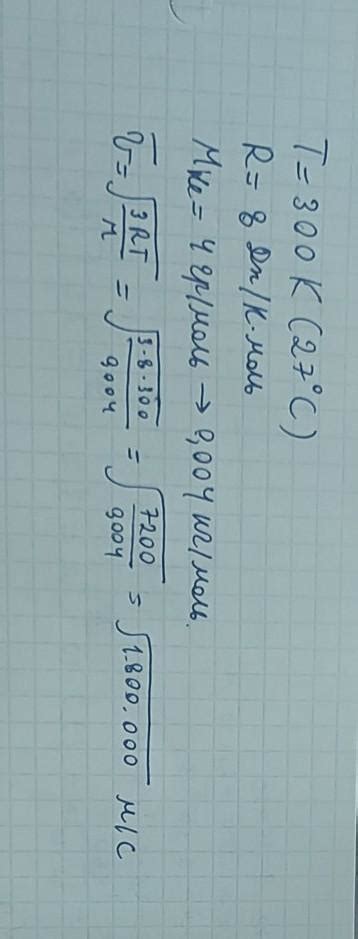 T = 300 K (27°C)
R = 8 Дж/К·моль
M_He = 4 гр/моль → 0,004 кг/моль.
v̅ = √(3RT/M) = √(3·8·300/0,004) = √(7200/0,004) = √1.800.000 м/с